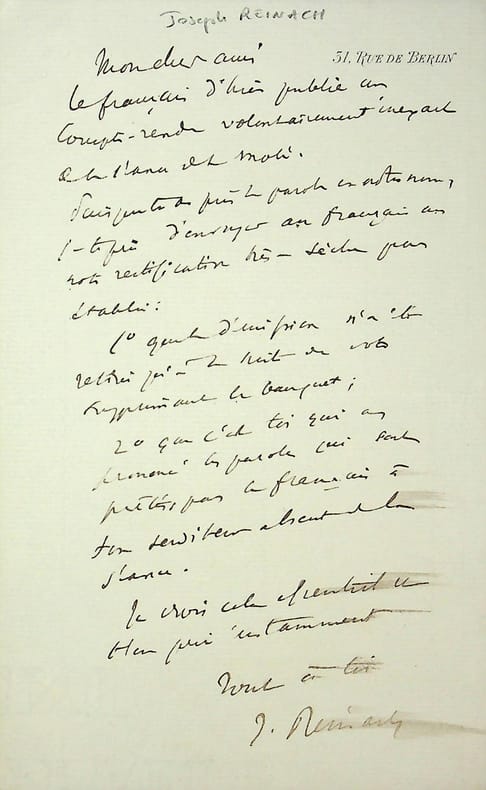 Joseph REINACH
31, RUE DE BERLIN
Mon cher ami
Le français d'hier publie un
compte-rendu volontairement inexact
de la séance de
la parole en notre nom,
d'envoyer au français une
note rectificative très-sèche pour
établir :
1° que la démission n'a été
retirée qu' la suite du vote
supprimant le banquet ;
2° que c'est toi qui as
prononcé les paroles qui sont
prêtées par le français à
ton serviteur absent de la
séance.
Je crois cela essentiel et
t'en prie instamment
Tout à toi
J. Reinach